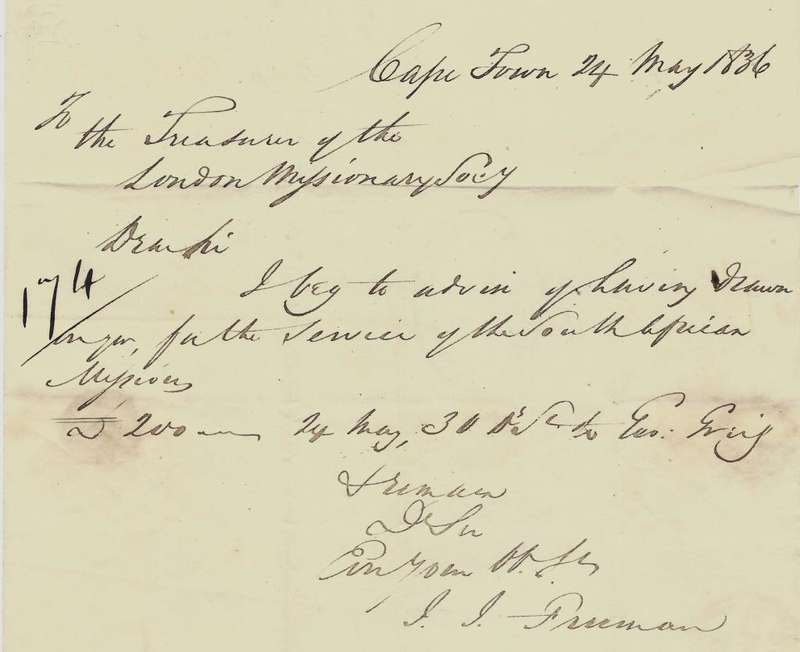 Cape Town 24 May 1836
To
the Treasurer of the
London Missionary Socy
Dear Sir
I beg to advise of having drawn
on you, for the service of the South African
Missions
£ 200 24 May, 30 Ds St to Geo: Greig
I remain
Dr Sir
J. J. Freeman